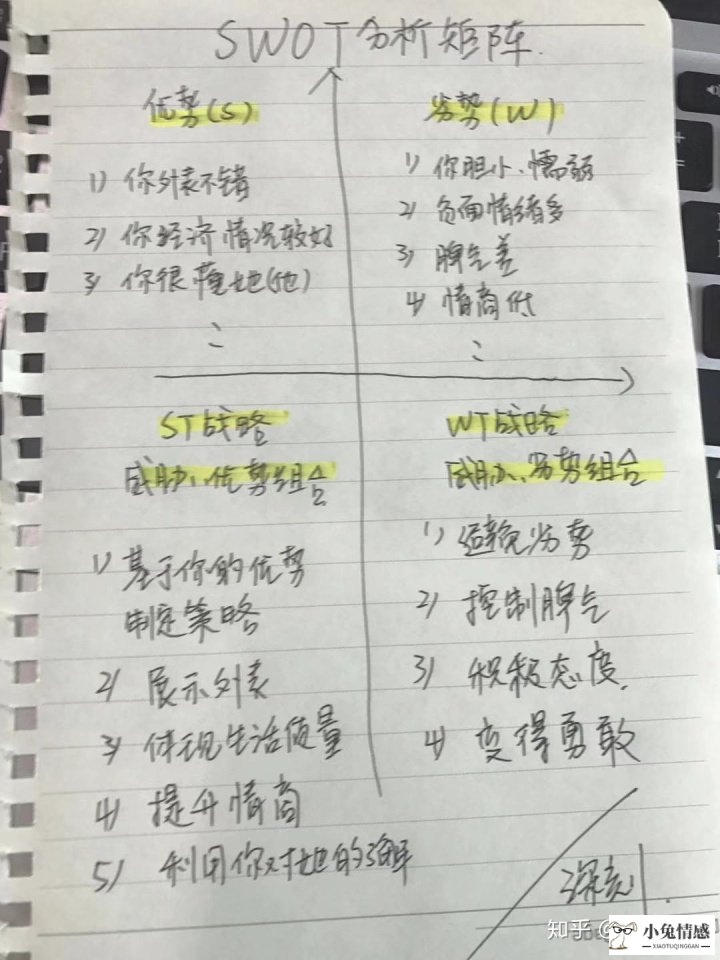 SWOT分析矩阵.
优势(S)
1) 你外表不错
2) 你经济情况较好
3) 你很懂她(他)
劣势(W)
1) 你胆小、懦弱
2) 负面情绪多
3) 脾气差
4) 情商低
ST战略
威胁、优势组合
1) 基于你的优势
制定策略
2) 展示外表
3) 体现生活质量
4) 提升情商
5) 利用你对她的了解
WT战略
威胁、劣势组合
1) 避免劣势
2) 控制脾气
3) 积极态度.
4) 变得勇敢
深刻
知乎
小兔情感
XIAOTUQINGGAN